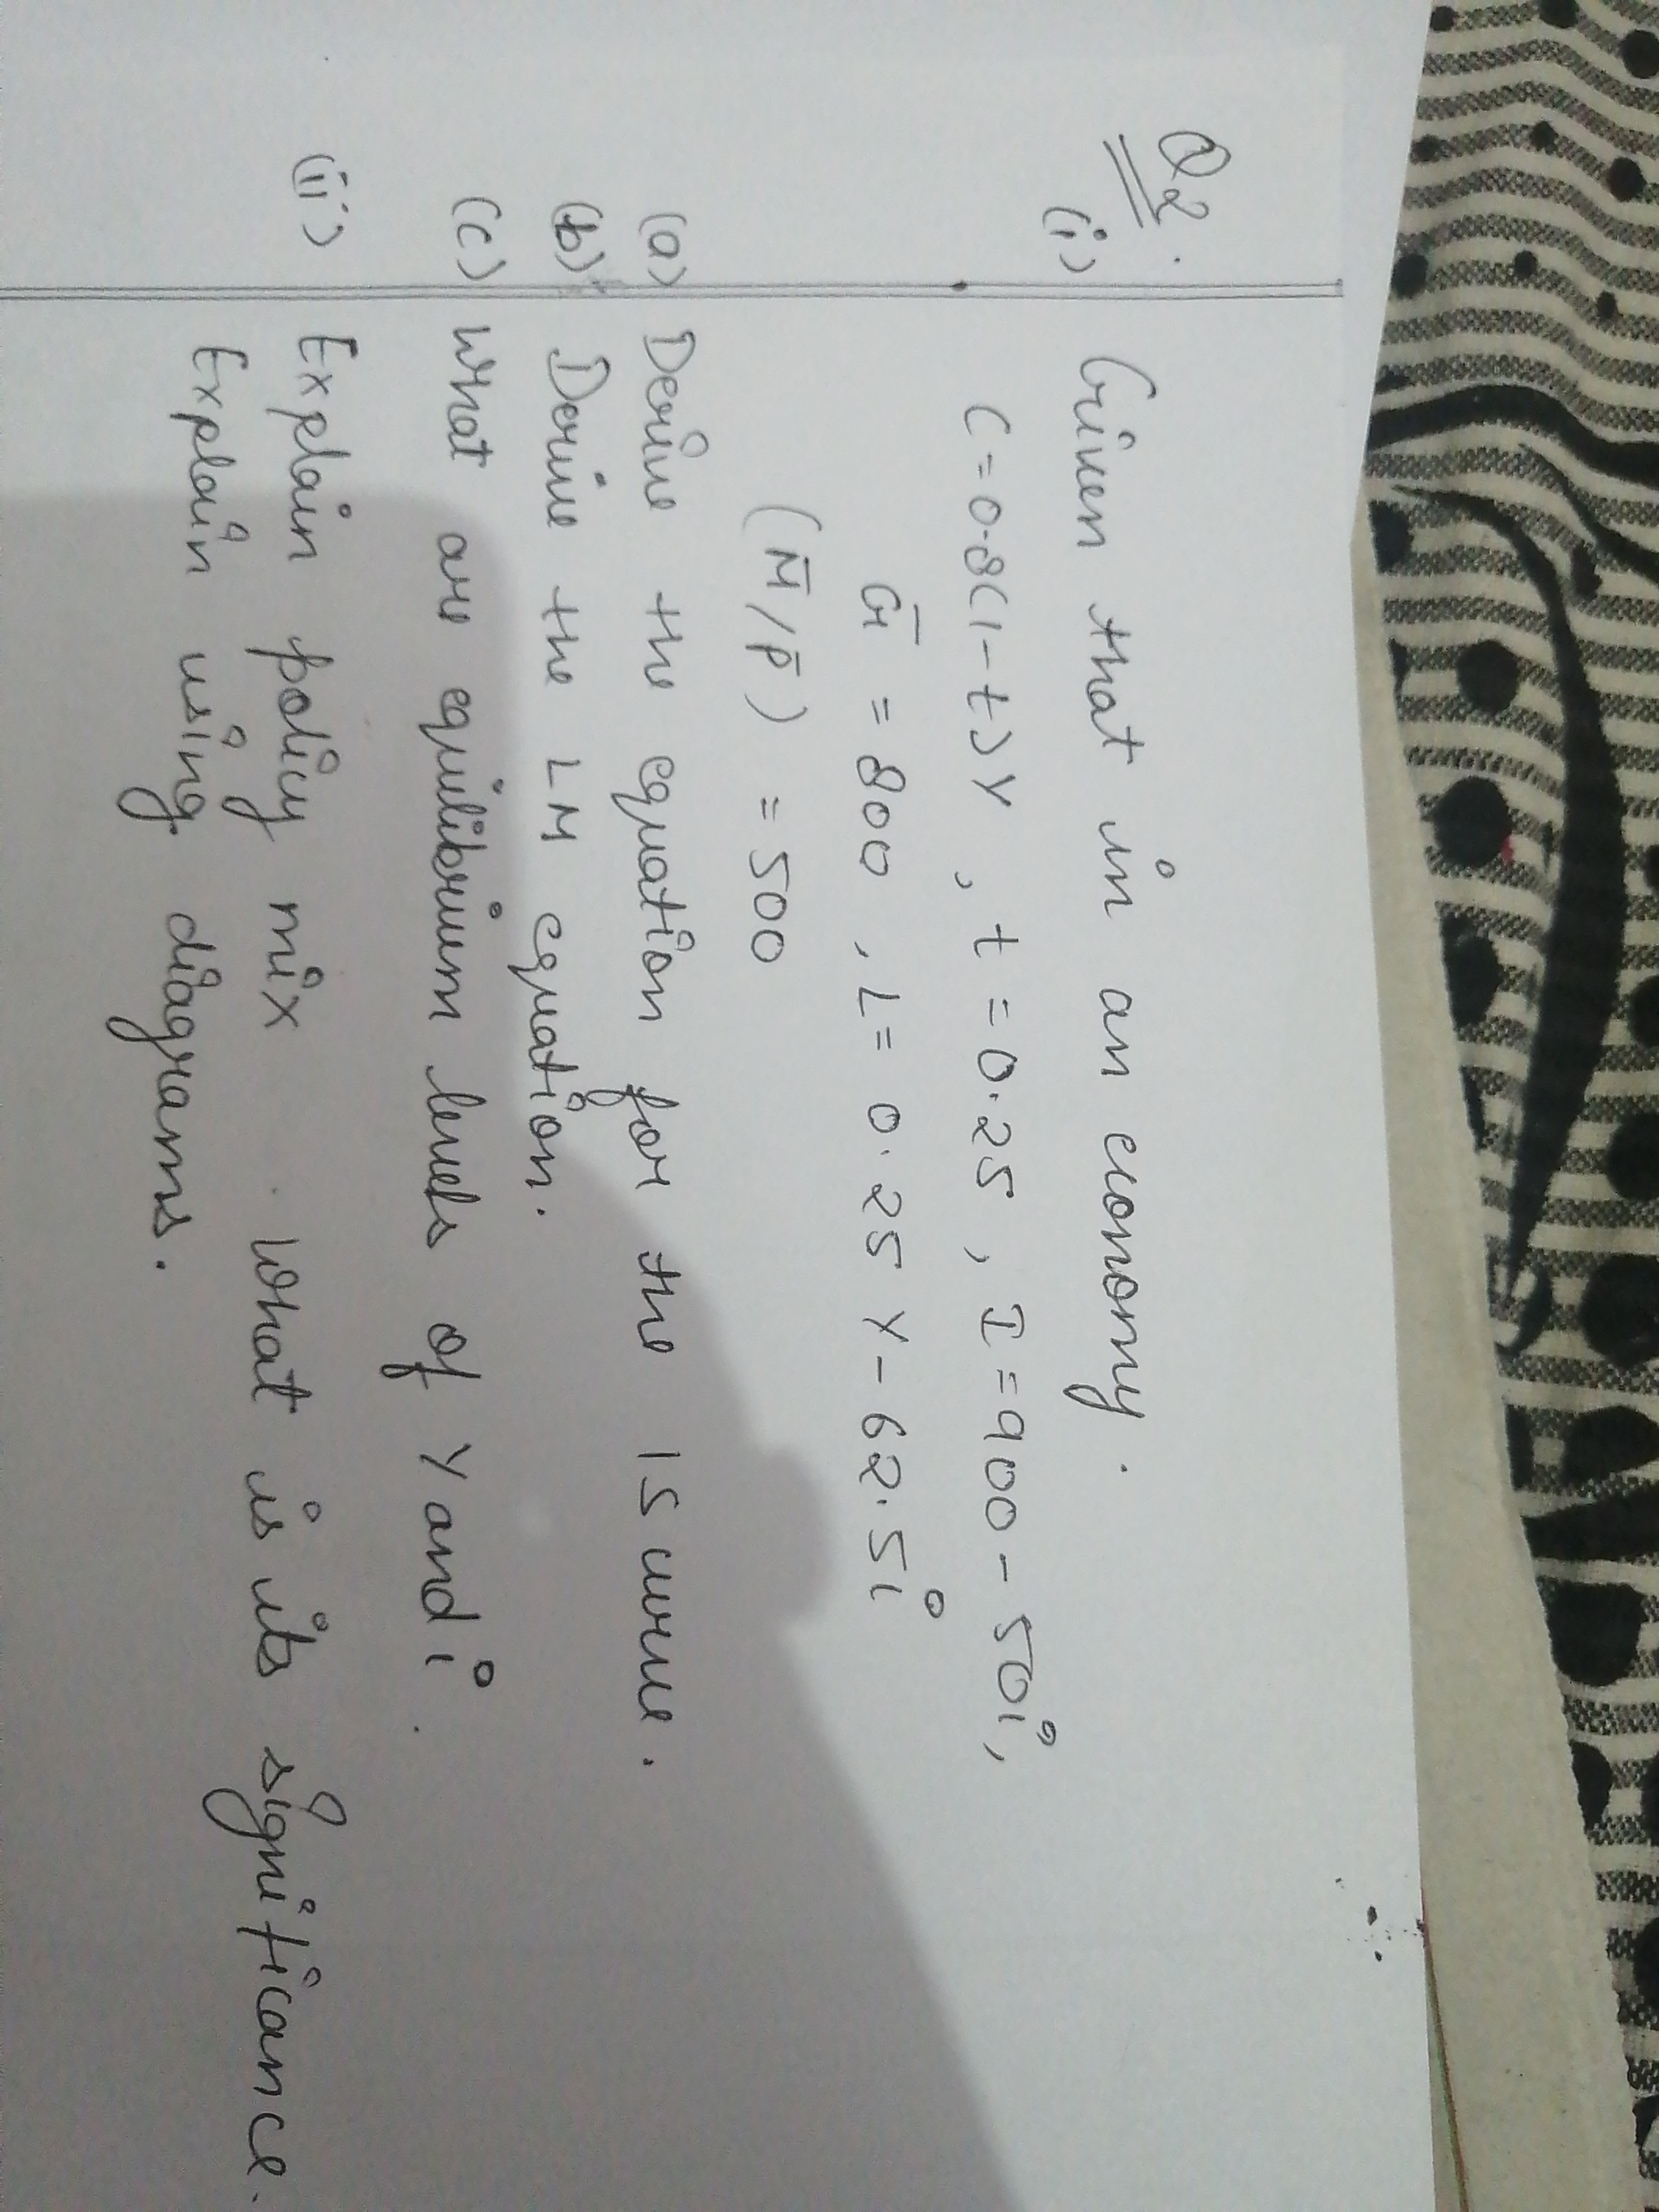 Q2.
(i) Given that in an economy.
C = 0.8(1-t)Y, t = 0.25, I = 900 - 50i,
G̅ = 800, L = 0.25Y - 62.5i
(M̅/P̅) = 500
(a) Derive the equation for the IS curve.
(b) Derive the LM equation.
(c) What are equilibrium levels of Y and i.
(ii) Explain policy mix. What is its significance.
Explain using diagrams.